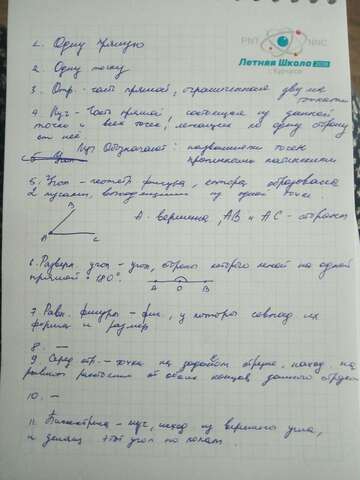 PNPI NNC
Летняя Школа 2018
г. Курчатов
1. Одну прямую
2. Одну точку
3. Отр. - часть прямой, ограниченная двумя
точками
4. Луч - часть прямой состоящая из данной
точки и всех точек, лежащих по одну сторону
от неё
Луч Обозначают: названиями точек
латинскими
5. Угол - геометр. фигура, которая образована
2 лучами, выходящими из одной точки.
B
A - вершина, AB и AC - стороны
A C
6. Разверн. угол - угол, стороны которого лежат на одной
прямой. 180°.
A O B
7. Равн. фигуры - фиг., у которых совпад. их
форма и размер
8. —
9. Серед. отр. - точка на заданном отрезке, наход. на
равном расстоянии от обоих концов данного отрезка
10. —
11. Биссектриса - луч, исход. из вершины угла,
и делящ. этот угол по полам.